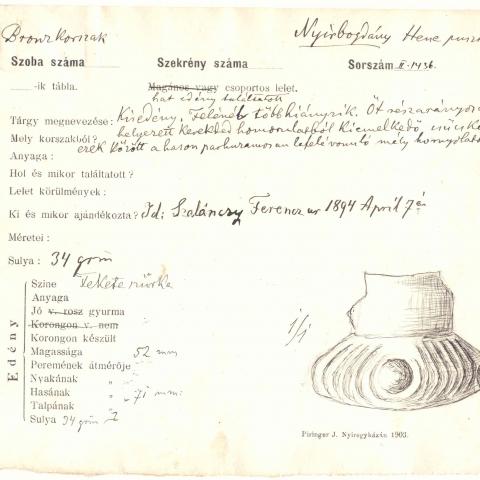 Bronzkorszak
Nyirbogdány Hene puszta
Szoba száma
Szekrény száma
Sorszám II-1436.
-ik tábla.
Magános vagy csoportos lelet.
hat edény találtatott
Tárgy megnevezése: Kisedény, Felének több hiányzik. Öt részarányosan
Mely korszakból? helyezett kerekded homorulatból kiemelkedő, csücskök
Anyaga: között a hason párhuzamosan lefelé vonuló mély hornyolatok
Hol és mikor találtatott?
Lelet körülmények:
Ki és mikor ajándékozta? Id: Szalánczy Ferencz ur 1894 April 7én
Méretei:
Sulya: 34 grm
Edény
Szine Fekete szürke
Anyaga
Jó v. rosz gyurma
Korongon v. nem
Korongon készült
Magassága 52 mm
Peremének átmérője
Nyakának "
Hasának " 71 mm:
Talpának "
Sulya 34 grm
1/1
Piringer J. Nyiregyházán 1903.